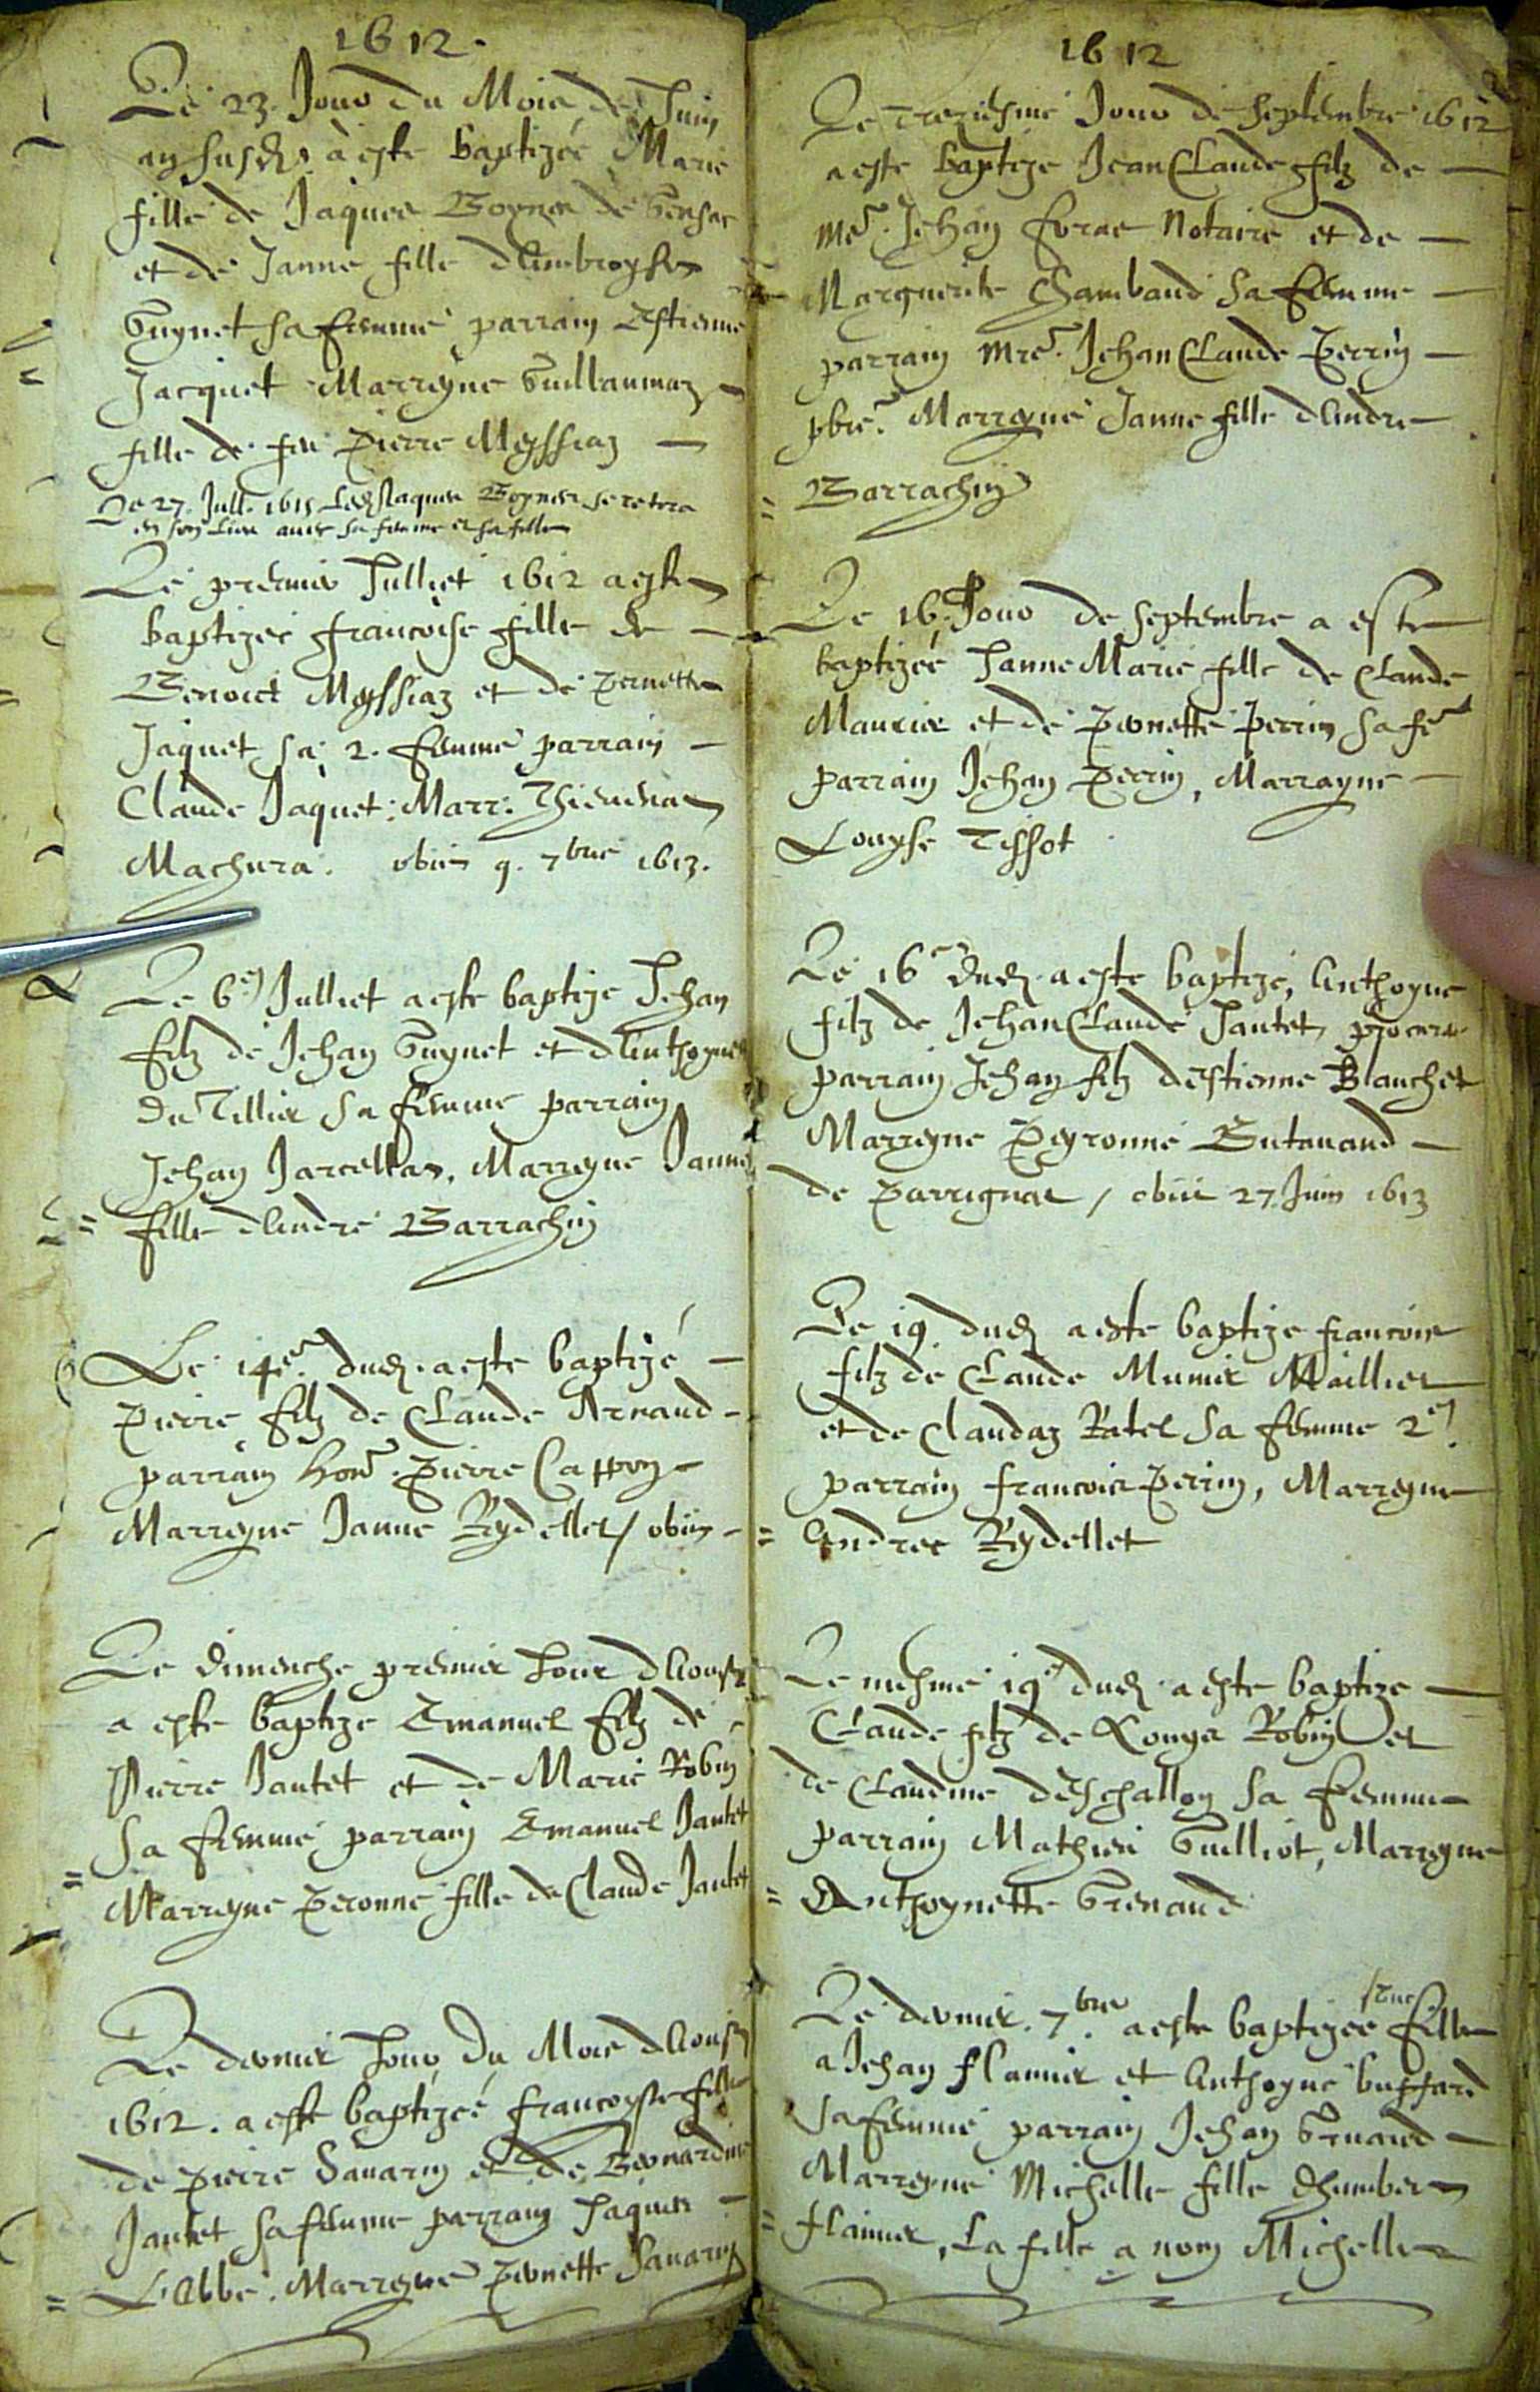 1612.
Le 23. Jour du Mois de Juin
an susd. a este baptizée Marie
fille de Jaques Boymer de
et de Janne fille d'Ambroyse
Guynet sa femme parrain Estienne
Jacquet Marreyne Guillaumaz
fille de feu Pierre Meyssiaz
Le 27. Jull. 1615 Led. Jaques Boymer se retera
en son lieu avec sa femme et sa fille
Le premier Julliet 1612 a este
baptizee francoise fille de
Benoict Meyssiaz et de Pernette
Jaquet sa 2. femme parrain
Claude Jaquet: Marr:
Machura. obiit 9. 7bre 1613.
Le 6e Julliet a este baptize Jehan
filz de Jehan Guynet et d'Anthoyne
du Tillier sa femme parrain
Jehan Jarcellat, Marreyne Janne
fille d'Andre Barrachin
Le 14e. dud. a este baptizé
Pierre filz de Claude Arnaud
parrain hon. Pierre Cappon
Marreyne Janne Rydellet / obiit
Le dimenche premier Jour d'Aoust
a este baptize Emanuel filz de
Pierre Jantet et de Marie Robin
sa femme parrain Emanuel Jantet
Marreyne Peronne fille de Claude Jantet
Le dernier Jour du Mois d'Aoust
1612. a este baptizeé francoyse fille
de Pierre Savarin et de Bernardine
Jantet sa femme parrain Jaques
L'Abbe. Marreyne Pernette Savarin
1612
Le Treziesme Jour de Septembre 1612
a este baptize Jean Claude filz de
Me. Jehan Notaire et de
Marguerite Chambaud sa femme
parrain Mre. Jehan Claude Perrin
pbre. Marreyne Janne fille d'Andre
Barrachin
Le 16. Jour de Septembre a este
baptizée Janne Marie fille de Claude
Maurier et de Pernette Perrin sa fe
parrain Jehan Perrin, Marrayne
Louyse Tissot
Le 16e dud. a este baptizé, Anthoyne
filz de Jehan Claude Jantet,
parrain Jehan filz d'Estienne Blanchet
Marreyne Peyronne Gutenaud
de Parrignat / obiit 27. Juin 1613
Le 19 dud. a este baptize francois
filz de Claude Munier Maillier
et de Claudaz Ratel sa femme 2e.
parrain francois Perrin, Marreyne
Andree Rydellet
Le mesme 19e dud. a este baptize
Claude filz de Louys Robin et
de Claudine deschallon sa femme
parrain Mathieu Guilliot, Marreyne
Anthoynette Grenaud
Le dernier. 7bre. a este baptizée une fille
a Jehan flamier et Anthoyne buffard
sa femme parrain Jehan Grenaud
Marreyne Michelle fille d'humbert
flamier, La fille a nom Michelle